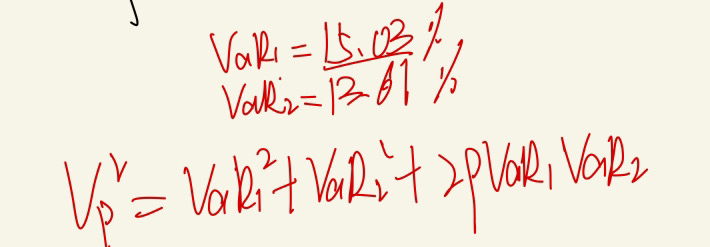 VaR₁ = 15.03 %
VaR₂ = 13.61 %
Vₚ² = VaR₁² + VaR₂² + 2ρVaR₁ VaR₂